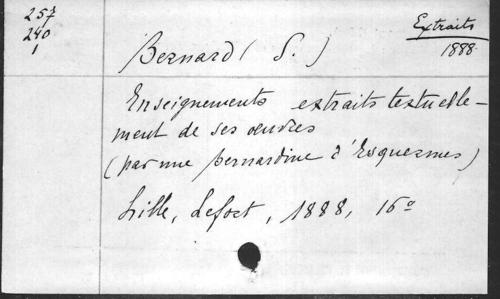 257
240
1
Extraits
1888
Bernard (S.)
Enseignements extraits textuelle-
ment de ses œuvres
(par une bernardine d'Esquermes)
Lille, Lefort, 1888, 16º